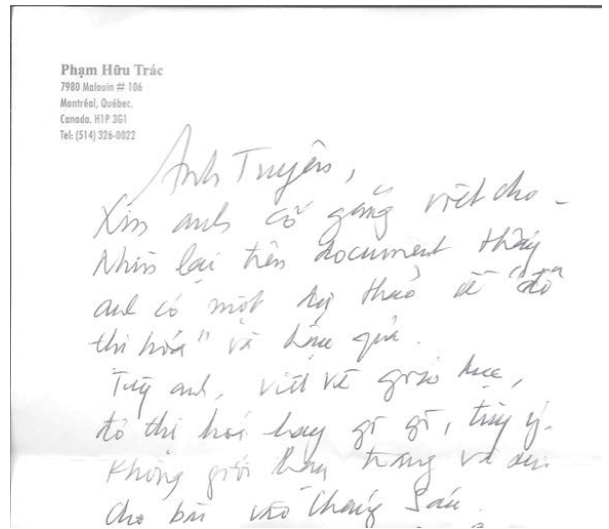 Phạm Hữu Trác
7980 Malouin # 106
Montréal, Québec.
Canada. H1P 3G1
Tel: (514) 326-0022
Anh Truyên,
Xin anh cố gắng viết cho -
Nhìn lại trên document thấy
anh có một dự thảo về "đô
thi hóa" và hậu quả.
Tùy anh, viết về giáo dục,
đô thi hoá hay gì gì, tùy ý.
Không giới hạn trang và xin
cho bài vào tháng Sáu.